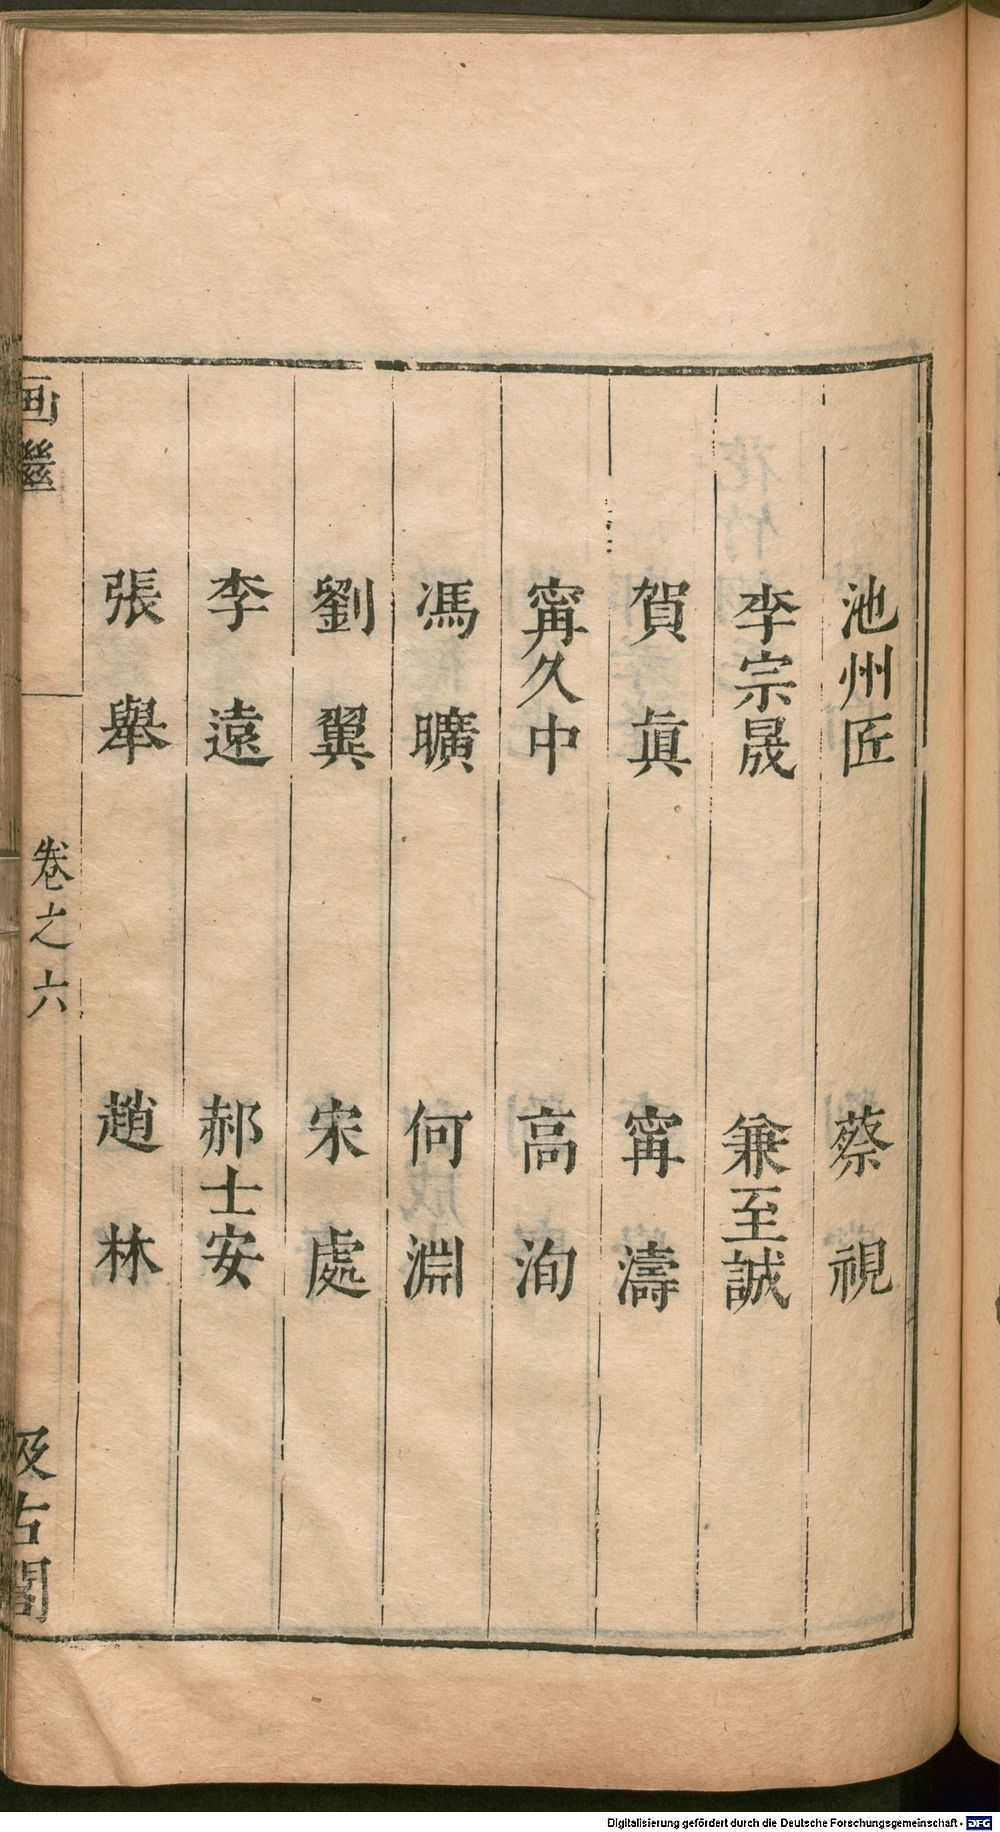 池州匠　蔡視
李宗晟　兼至誠
賀眞　甯濤
甯久中　高洵
馮曠　何淵
劉翼　宋處
李遠　郝士安
張舉　趙林
画繼　卷之六　汲古閣
Digitalisierung gefördert durch die Deutsche Forschungsgemeinschaft - DFG